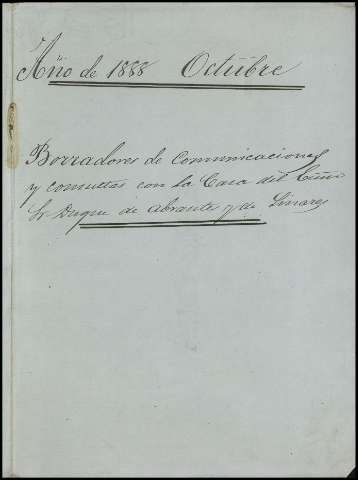 Año de 1888 Octubre
Borradores de Comunicaciones
y consultas con la Casa del Exmo
Sr Duque de Abrantes y de Linares